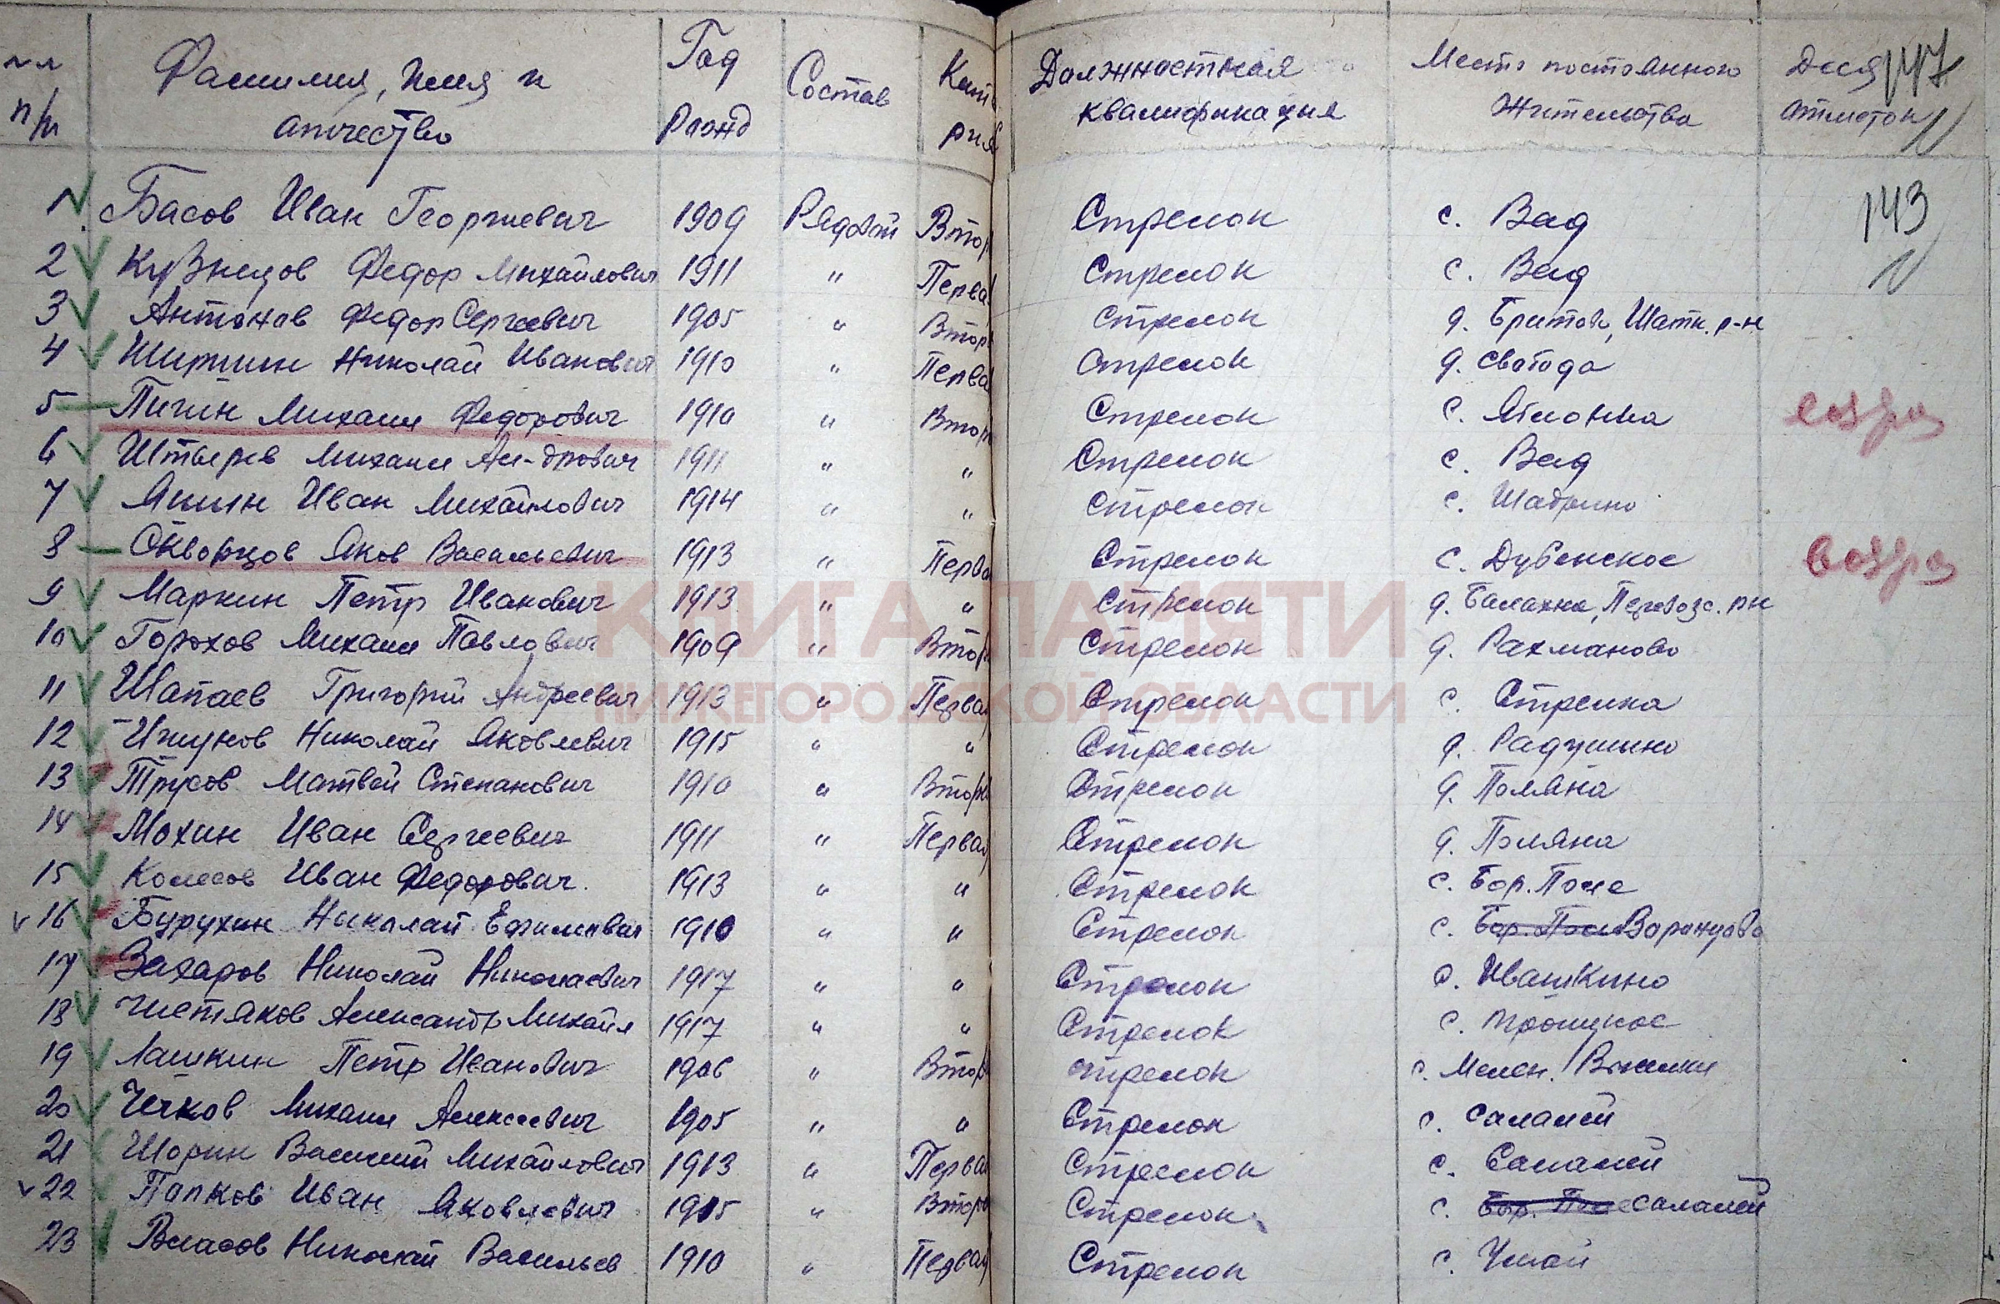 п/п Фамилия, Имя и отчество Год рожд Состав Кате рия Должностная квалификация Место постоянного жительства отметок 147
143
1 Басов Иван Георгиевич 1909 Рядовой Втор Стрелок с. Вад
2 Кузнецов Федор Михайлович 1911 " Первая Стрелок с. Вад
3 Антонов Федор Сергеевич 1905 " Втор Стрелок д. Бритово, Шатк. р-н
4 Ширшин Николай Иванович 1910 " Первая Стрелок д. Свобода
5 Пигин Михаил Федорович 1910 " Втор Стрелок с. Яблонка возвра
6 Штырев Михаил Ал-дрович 1911 " " Стрелок с. Вад
7 Яшин Иван Михайлович 1914 " " Стрелок с. Шабрино
8 Скворцов Яков Васильевич 1913 " Первая Стрелок с. Дубенское возвра
9 Маркин Петр Иванович 1913 " " Стрелок д. Балахна, Перевозс. рн
10 Горохов Михаил Павлович 1909 " Втор Стрелок д. Рахманово
11 Шапаев Григорий Андреевич 1913 " Первая Стрелок с. Стрелка
12 Ижуков Николай Яковлевич 1915 " " Стрелок д. Радушино
13 Трусов Матвей Степанович 1910 " Втор Стрелок д. Поляна
14 Мохин Иван Сергеевич 1911 " Первая Стрелок д. Поляна
15 Колесов Иван Федорович. 1913 " " Стрелок с. Бор. Поле
16 Бурухин Николай Ефимович 1910 " " Стрелок с. Бор. Поле Воронцово
17 Захаров Николай Николаевич 1917 " " Стрелок с. Ивашкино
18 Чистяков Александр Михайл 1917 " " Стрелок с. Троицкое
19 Лашкин Петр Иванович 1906 " Втор Стрелок с. Мелен.
20 Чичков Михаил Алексеевич 1905 " " Стрелок с. Салалей
21 Шорин Василий Михайлович 1913 " Первая Стрелок с. Салалей
22 Папков Иван Яковлевич 1905 " Втор Стрелок с. Бор. Поле Салалей
23 Власов Николай Васильев 1910 " Первая Стрелок с. Умай
КНИГА ПАМЯТИ
НИЖЕГОРОДСКОЙ ОБЛАСТИ